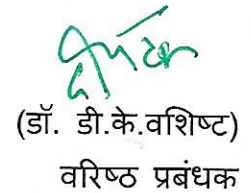 (डॉ. डी.के.वशिष्ट)
वरिष्ठ प्रबंधक